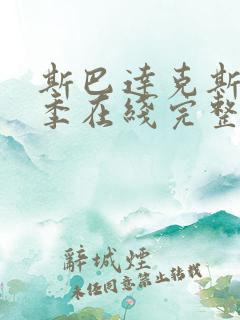 斯巴達克斯
季在綫完整
辭城煙
未经同意禁止转载